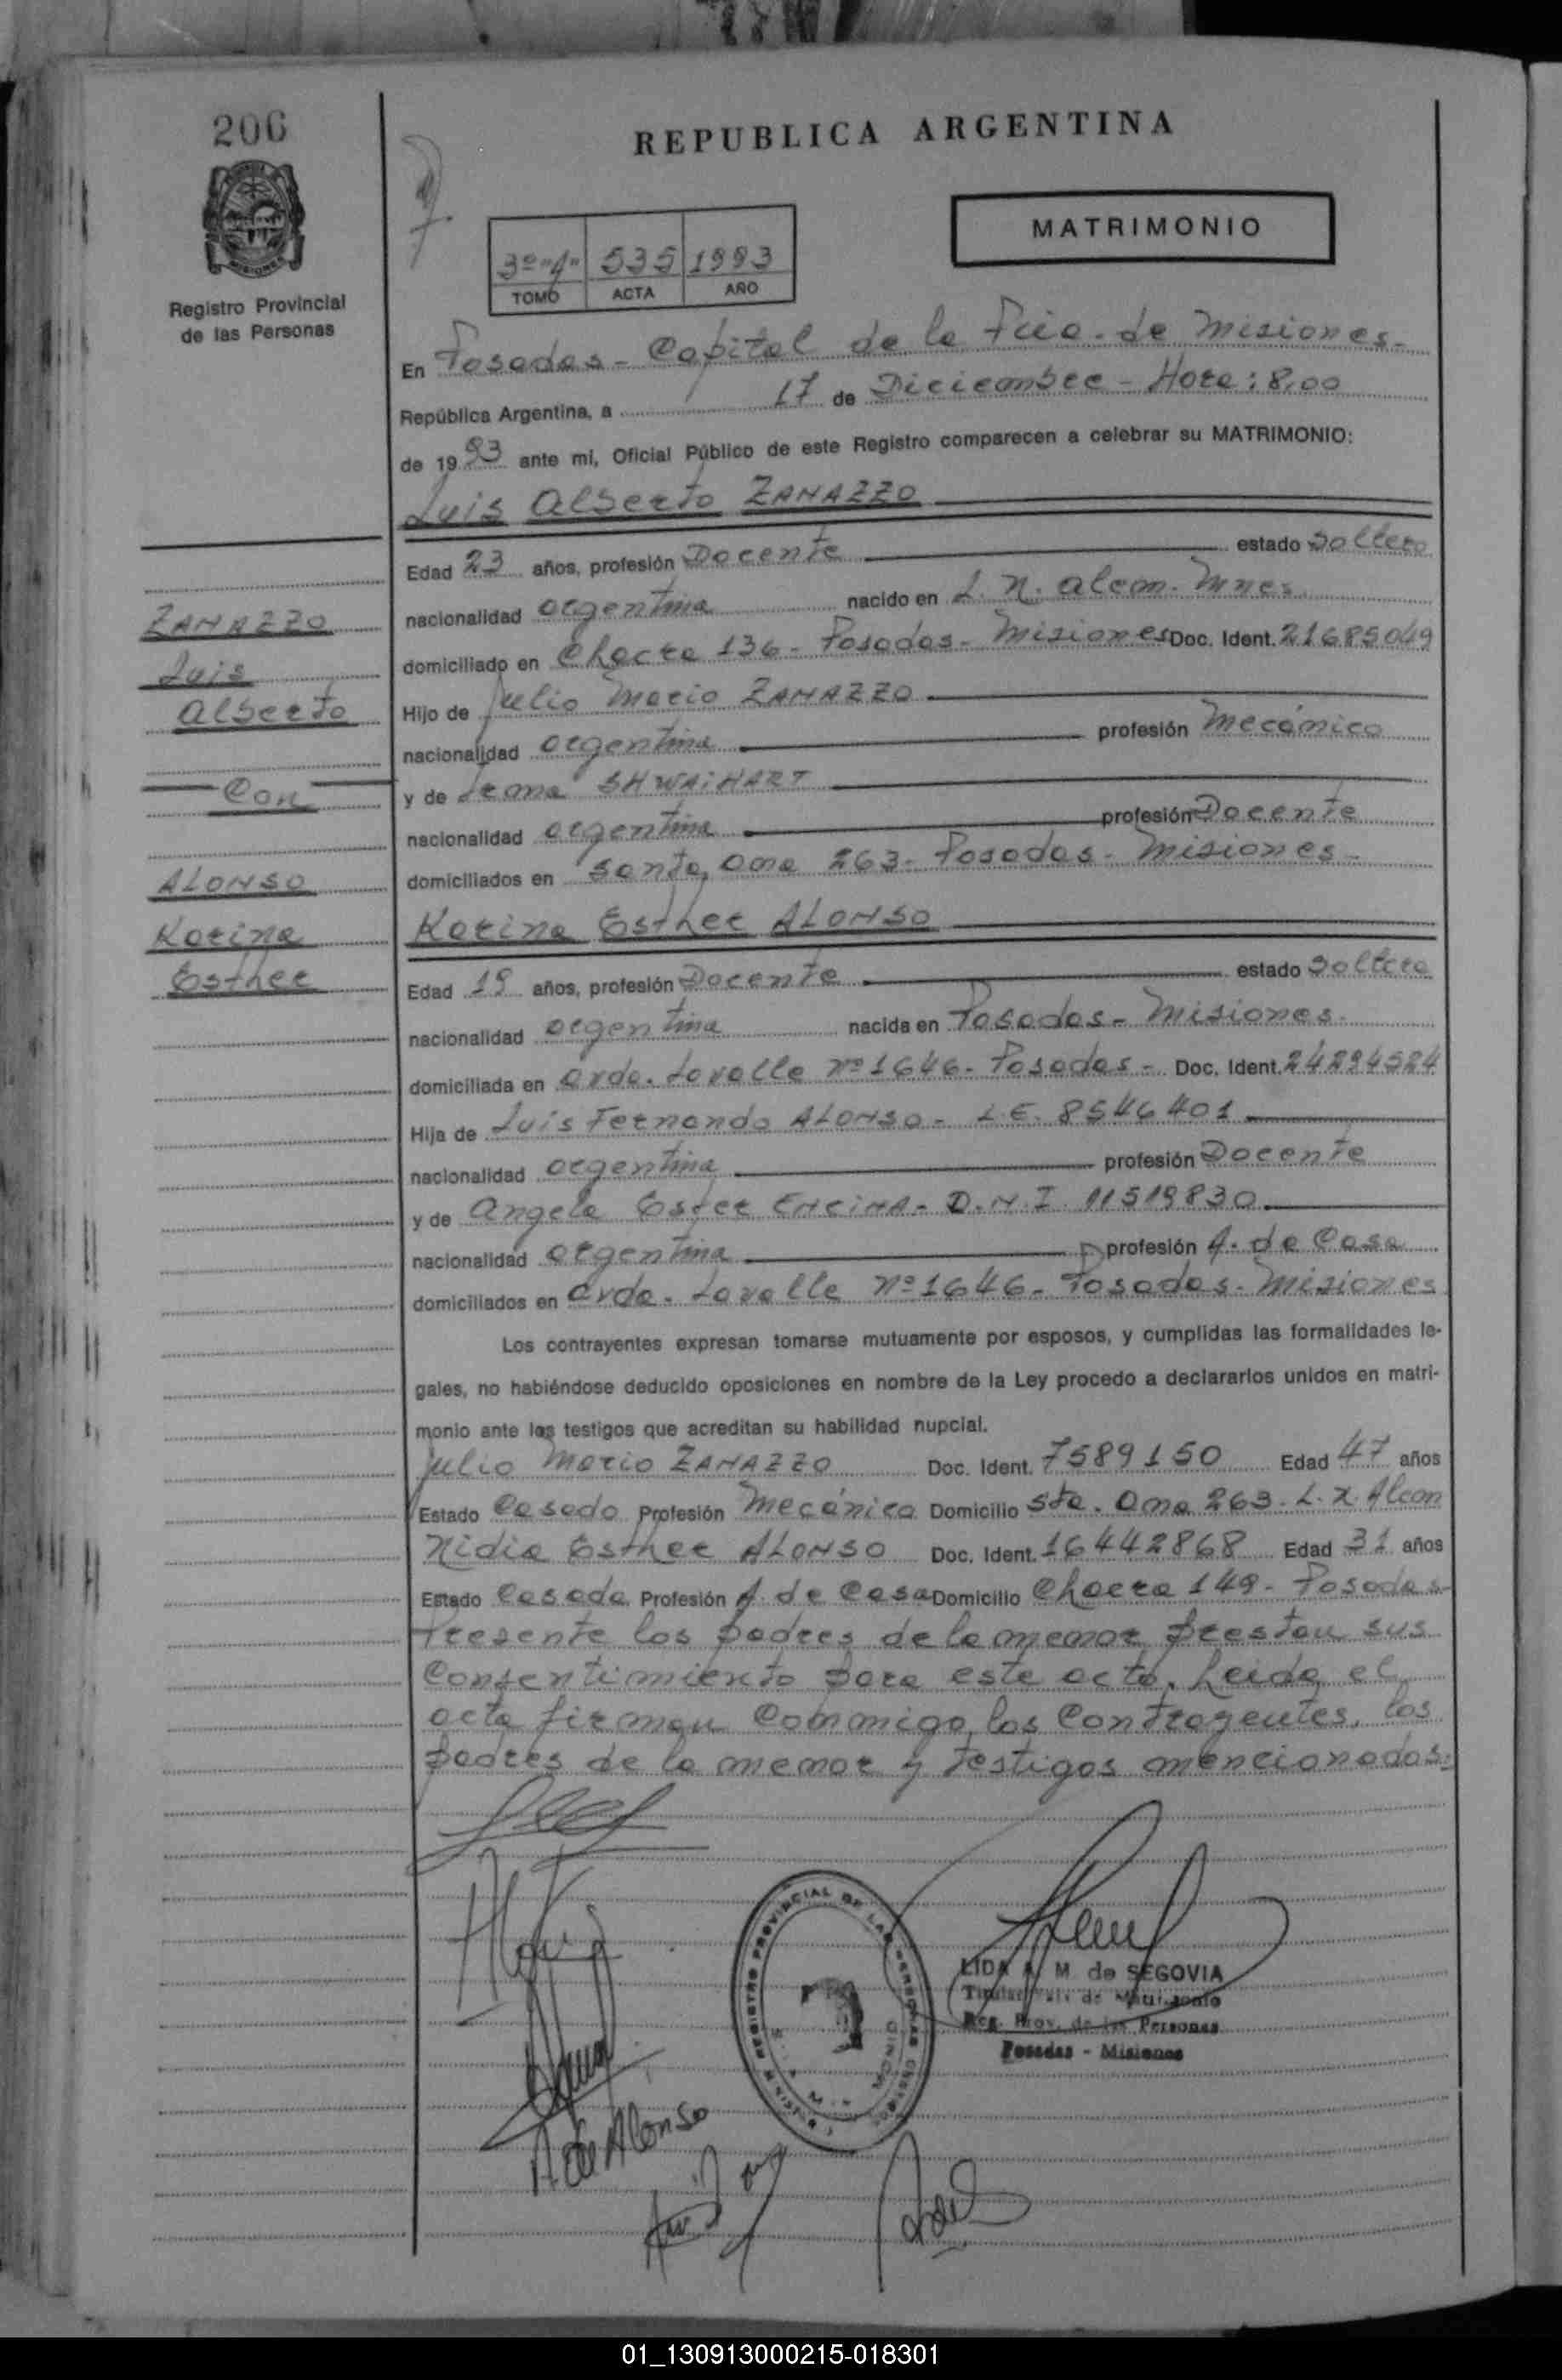 206
REPUBLICA ARGENTINA
MATRIMONIO
3º "A" 535 1993
TOMO ACTA AÑO
Registro Provincial
de las Personas
En Posadas - Capital de la Pcia. de Misiones.
República Argentina, a 17 de Diciembre - Hora: 8,00
de 1993 ante mí, Oficial Público de este Registro comparecen a celebrar su MATRIMONIO:
Luis Alberto ZANAZZO
Edad 23 años, profesión Docente estado Soltero
nacionalidad argentina nacido en L. N. Alem. Mnes.
domiciliado en Chacra 136 - Posadas - Misiones Doc. Ident. 21685049
Hijo de Julio Mario ZANAZZO
nacionalidad argentina profesión Mecánico
y de SHWAIHART
nacionalidad argentina profesión Docente
domiciliados en Santa Ana 263 - Posadas - Misiones -
Karina Esther ALONSO
Edad 19 años, profesión Docente estado Soltera
nacionalidad argentina nacida en Posadas - Misiones.
domiciliada en Avda. Lavalle nº 1646 - Posadas - Doc. Ident. 24294524
Hija de Luis Fernando ALONSO - L.E. 8546401
nacionalidad argentina profesión Docente
y de Angela Ester ENCINA - D.N.I 11519830
nacionalidad argentina profesión A. de Casa
domiciliados en Avda. Lavalle nº 1646 - Posadas - Misiones
Los contrayentes expresan tomarse mutuamente por esposos, y cumplidas las formalidades le-
gales, no habiéndose deducido oposiciones en nombre de la Ley procedo a declararlos unidos en matri-
monio ante los testigos que acreditan su habilidad nupcial.
Julio Mario ZANAZZO Doc. Ident. 7589150 Edad 47 años
Estado Casado Profesión Mecánico Domicilio Sta. Ana 263 - L. N. Alem
Nidia Esther ALONSO Doc. Ident. 16442868 Edad 31 años
Estado Casada Profesión A. de Casa Domicilio Chacra 149 - Posadas -
Presente los padres de la menor prestan sus
consentimiento para este acto. Leida el
acta firman conmigo los contrayentes, los
padres de la menor y testigos mencionados.
ZANAZZO
Luis
Alberto
Con
ALONSO
Karina
Esther
REGISTRO PROVINCIAL DE LAS PERSONAS
LIDA A. M. de SEGOVIA
Reg. Prov. de las Personas
Posadas - Misiones
A de Alonso
01_130913000215-018301